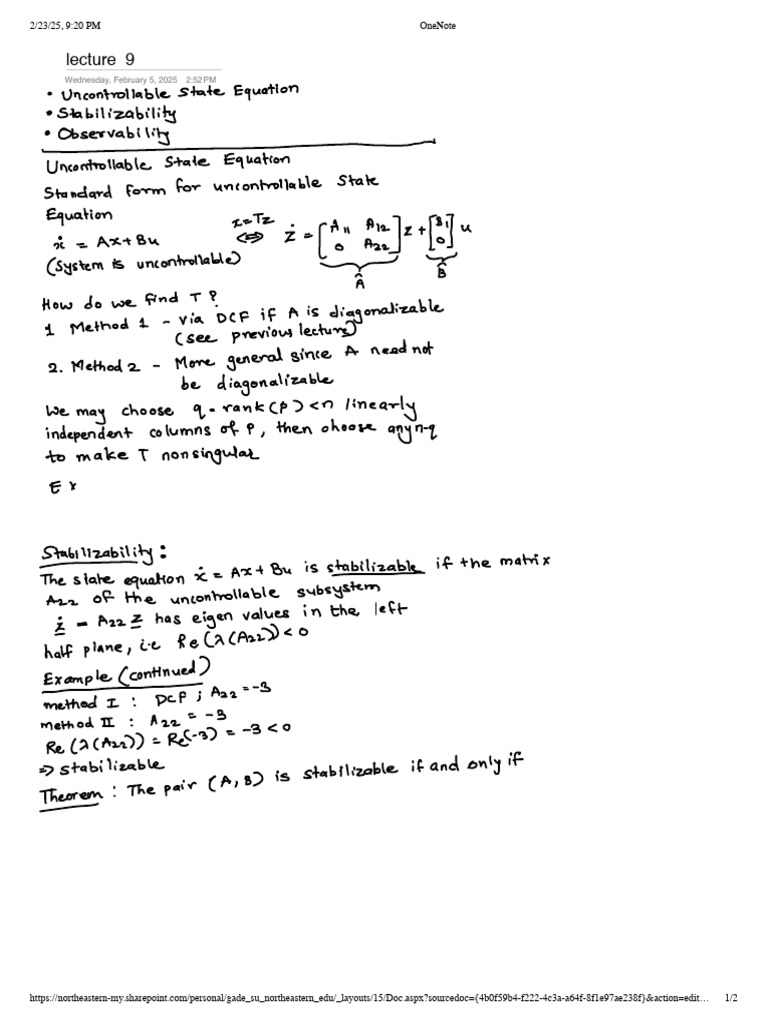 2/23/25, 9:20 PM OneNote
lecture 9
Wednesday, February 5, 2025 2:52 PM
• Uncontrollable State Equation
• Stabilizability
• Observability
Uncontrollable State Equation
Standard form for uncontrollable State
Equation
ẋ = Ax+Bu x=Tz ⇔ ż = [A11 A12; 0 A22] z + [B1; 0] u
(System is uncontrollable) Â B̂
How do we find T?
1 Method 1 - via DCF if A is diagonalizable
(see previous lecture)
2. Method 2 - More general since A need not
be diagonalizable
We may choose q = rank(P) < n linearly
independent columns of P, then choose any n-q
to make T nonsingular
Ex
Stabilizability:
The state equation ẋ = Ax + Bu is stabilizable if the matrix
A22 of the uncontrollable subsystem
ż = A22 z has eigen values in the left
half plane, i.e Re(λ(A22)) < 0
Example (continued)
method I : DCF ; A22 = -3
method II : A22 = -3
Re(λ(A22)) = Re(-3) = -3 < 0
⇒ stabilizable
Theorem : The pair (A, B) is stabilizable if and only if
https://northeastern-my.sharepoint.com/personal/gade_su_northeastern_edu/_layouts/15/Doc.aspx?sourcedoc={4b0f59b4-f222-4c3a-a64f-8f1e97ae238f}&action=edit… 1/2